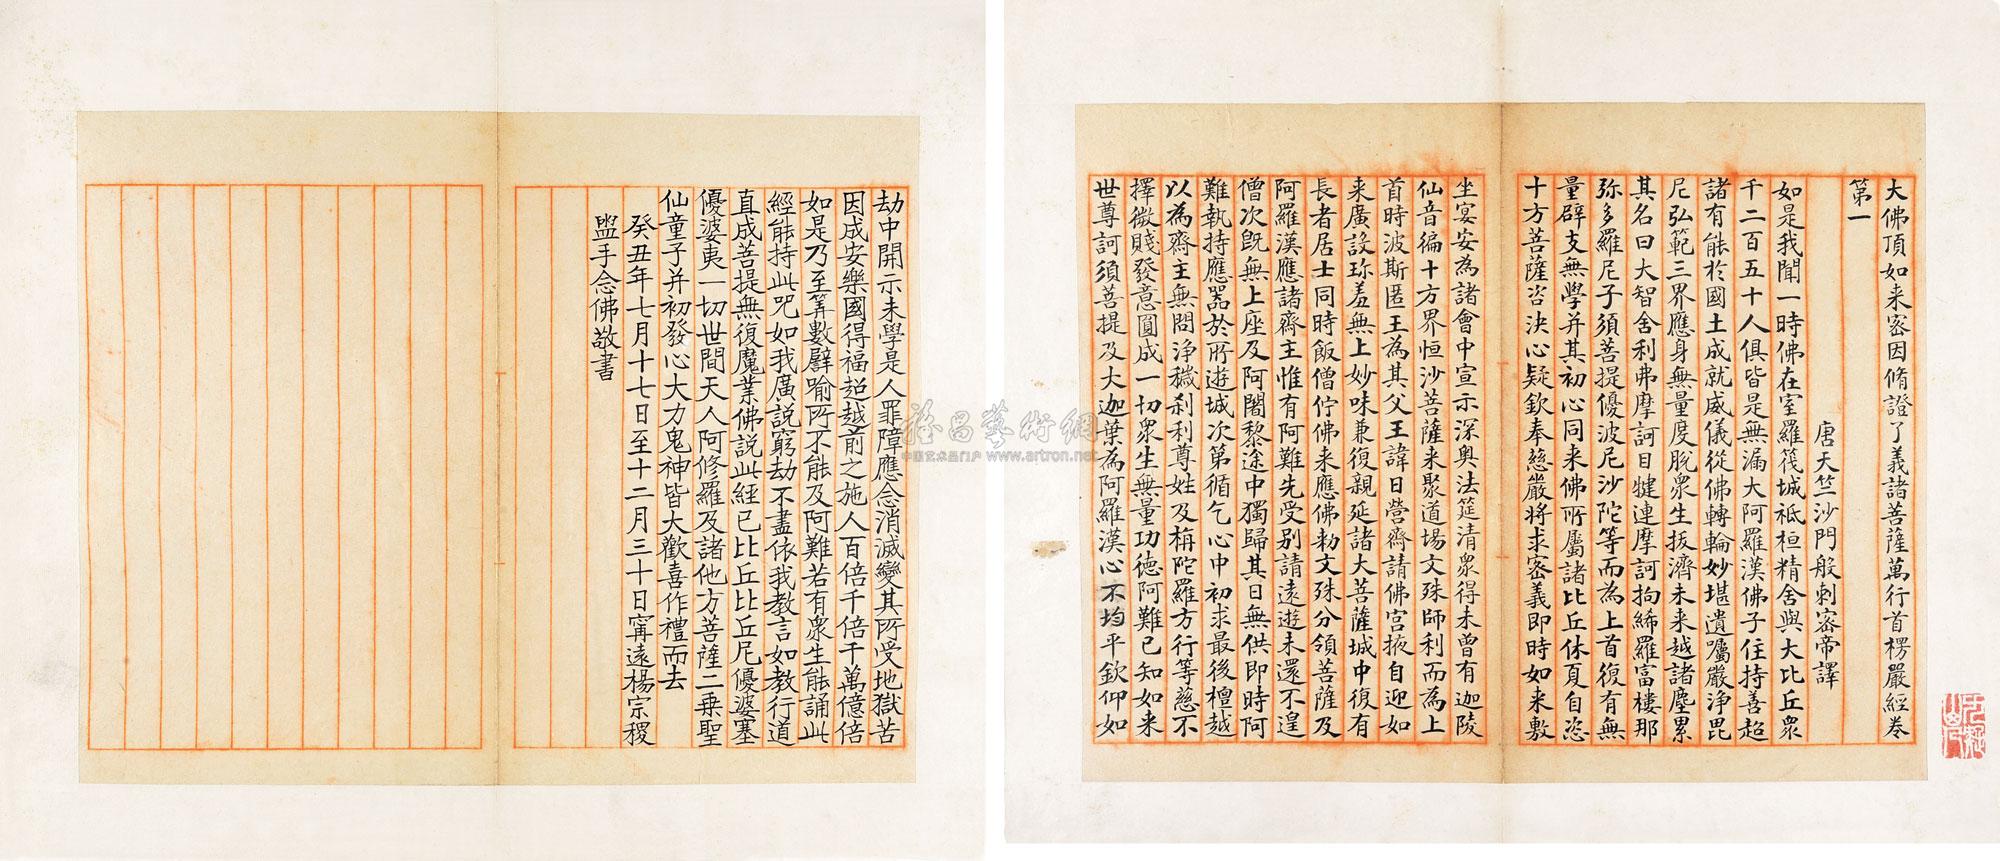 大佛頂如来密因脩證了義諸菩薩萬行首楞嚴經卷
第一
唐天竺沙門般剌密帝譯
如是我聞一時佛在室羅筏城祗桓精舍與大比丘衆
千二百五十人俱皆是無漏大阿羅漢佛子住持善超
諸有能於國土成就威儀從佛轉輪妙堪遺囑嚴淨毘
尼弘範三界應身無量度脫衆生拔濟未来越諸塵累
其名曰大智舍利弗摩訶目犍連摩訶拘絺羅富樓那
弥多羅尼子須菩提優波尼沙陀等而為上首復有無
量辟支無學并其初心同来佛所屬諸比丘休夏自恣
十方菩薩咨決心疑欽奉慈嚴将求密義即時如来敷
坐宴安為諸會中宣示深奥法筵清衆得未曾有迦陵
仙音徧十方界恒沙菩薩来聚道場文殊師利而為上
首時波斯匿王為其父王諱日營齋請佛宫掖自迎如
来廣設珎羞無上妙味兼復親延諸大菩薩城中復有
長者居士同時飯僧佇佛来應佛勑文殊分領菩薩及
阿羅漢應諸齋主惟有阿難先受别請遠遊未還不遑
僧次既無上座及阿闍黎途中獨歸其日無供即時阿
難執持應器於所遊城次第循乞心中初求最後檀越
以為齋主無問淨穢刹利尊姓及栴陀羅方行等慈不
擇微賤發意圓成一切衆生無量功德阿難已知如来
世尊訶須菩提及大迦葉為阿羅漢心不均平欽仰如
劫中開示未學是人罪障應念消滅變其所受地獄苦
因成安樂國得福超越前之施人百倍千倍千萬億倍
如是乃至筭數譬喻所不能及阿難若有衆生能誦此
經能持此咒如我廣説窮劫不盡依我教言如教行道
直成菩提無復魔業佛説此經已比丘比丘尼優婆塞
優婆夷一切世間天人阿修羅及諸他方菩薩二乗聖
仙童子并初發心大力鬼神皆大歡喜作禮而去
癸丑年七月十七日至十二月三十日甯遠楊宗稷
盥手念佛敬書
雅昌藝術網
中国艺术品门户 www.artron.net